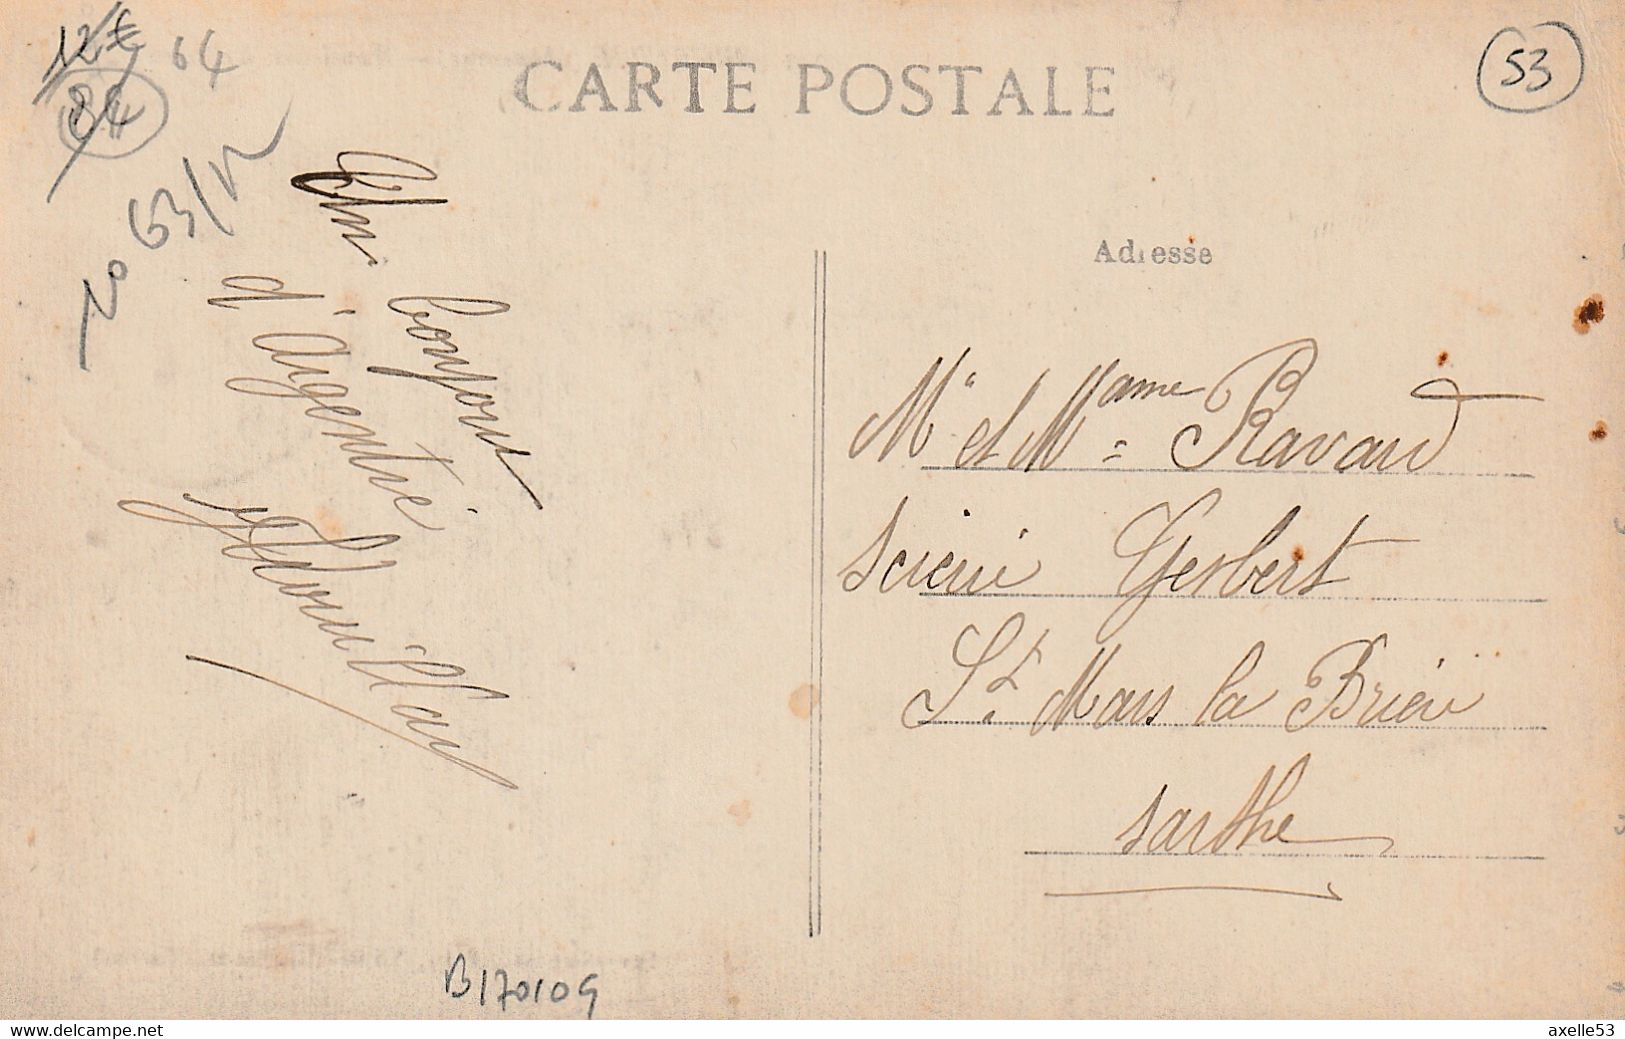 12€
84
64
CARTE POSTALE
53
63/12
20
Un bonjour
d'Argentré
Adresse
Mr et Mame Ravard
Scierie Gerbert
St Mars la Brière
Sarthe
B170109
www.delcampe.net
axelle53